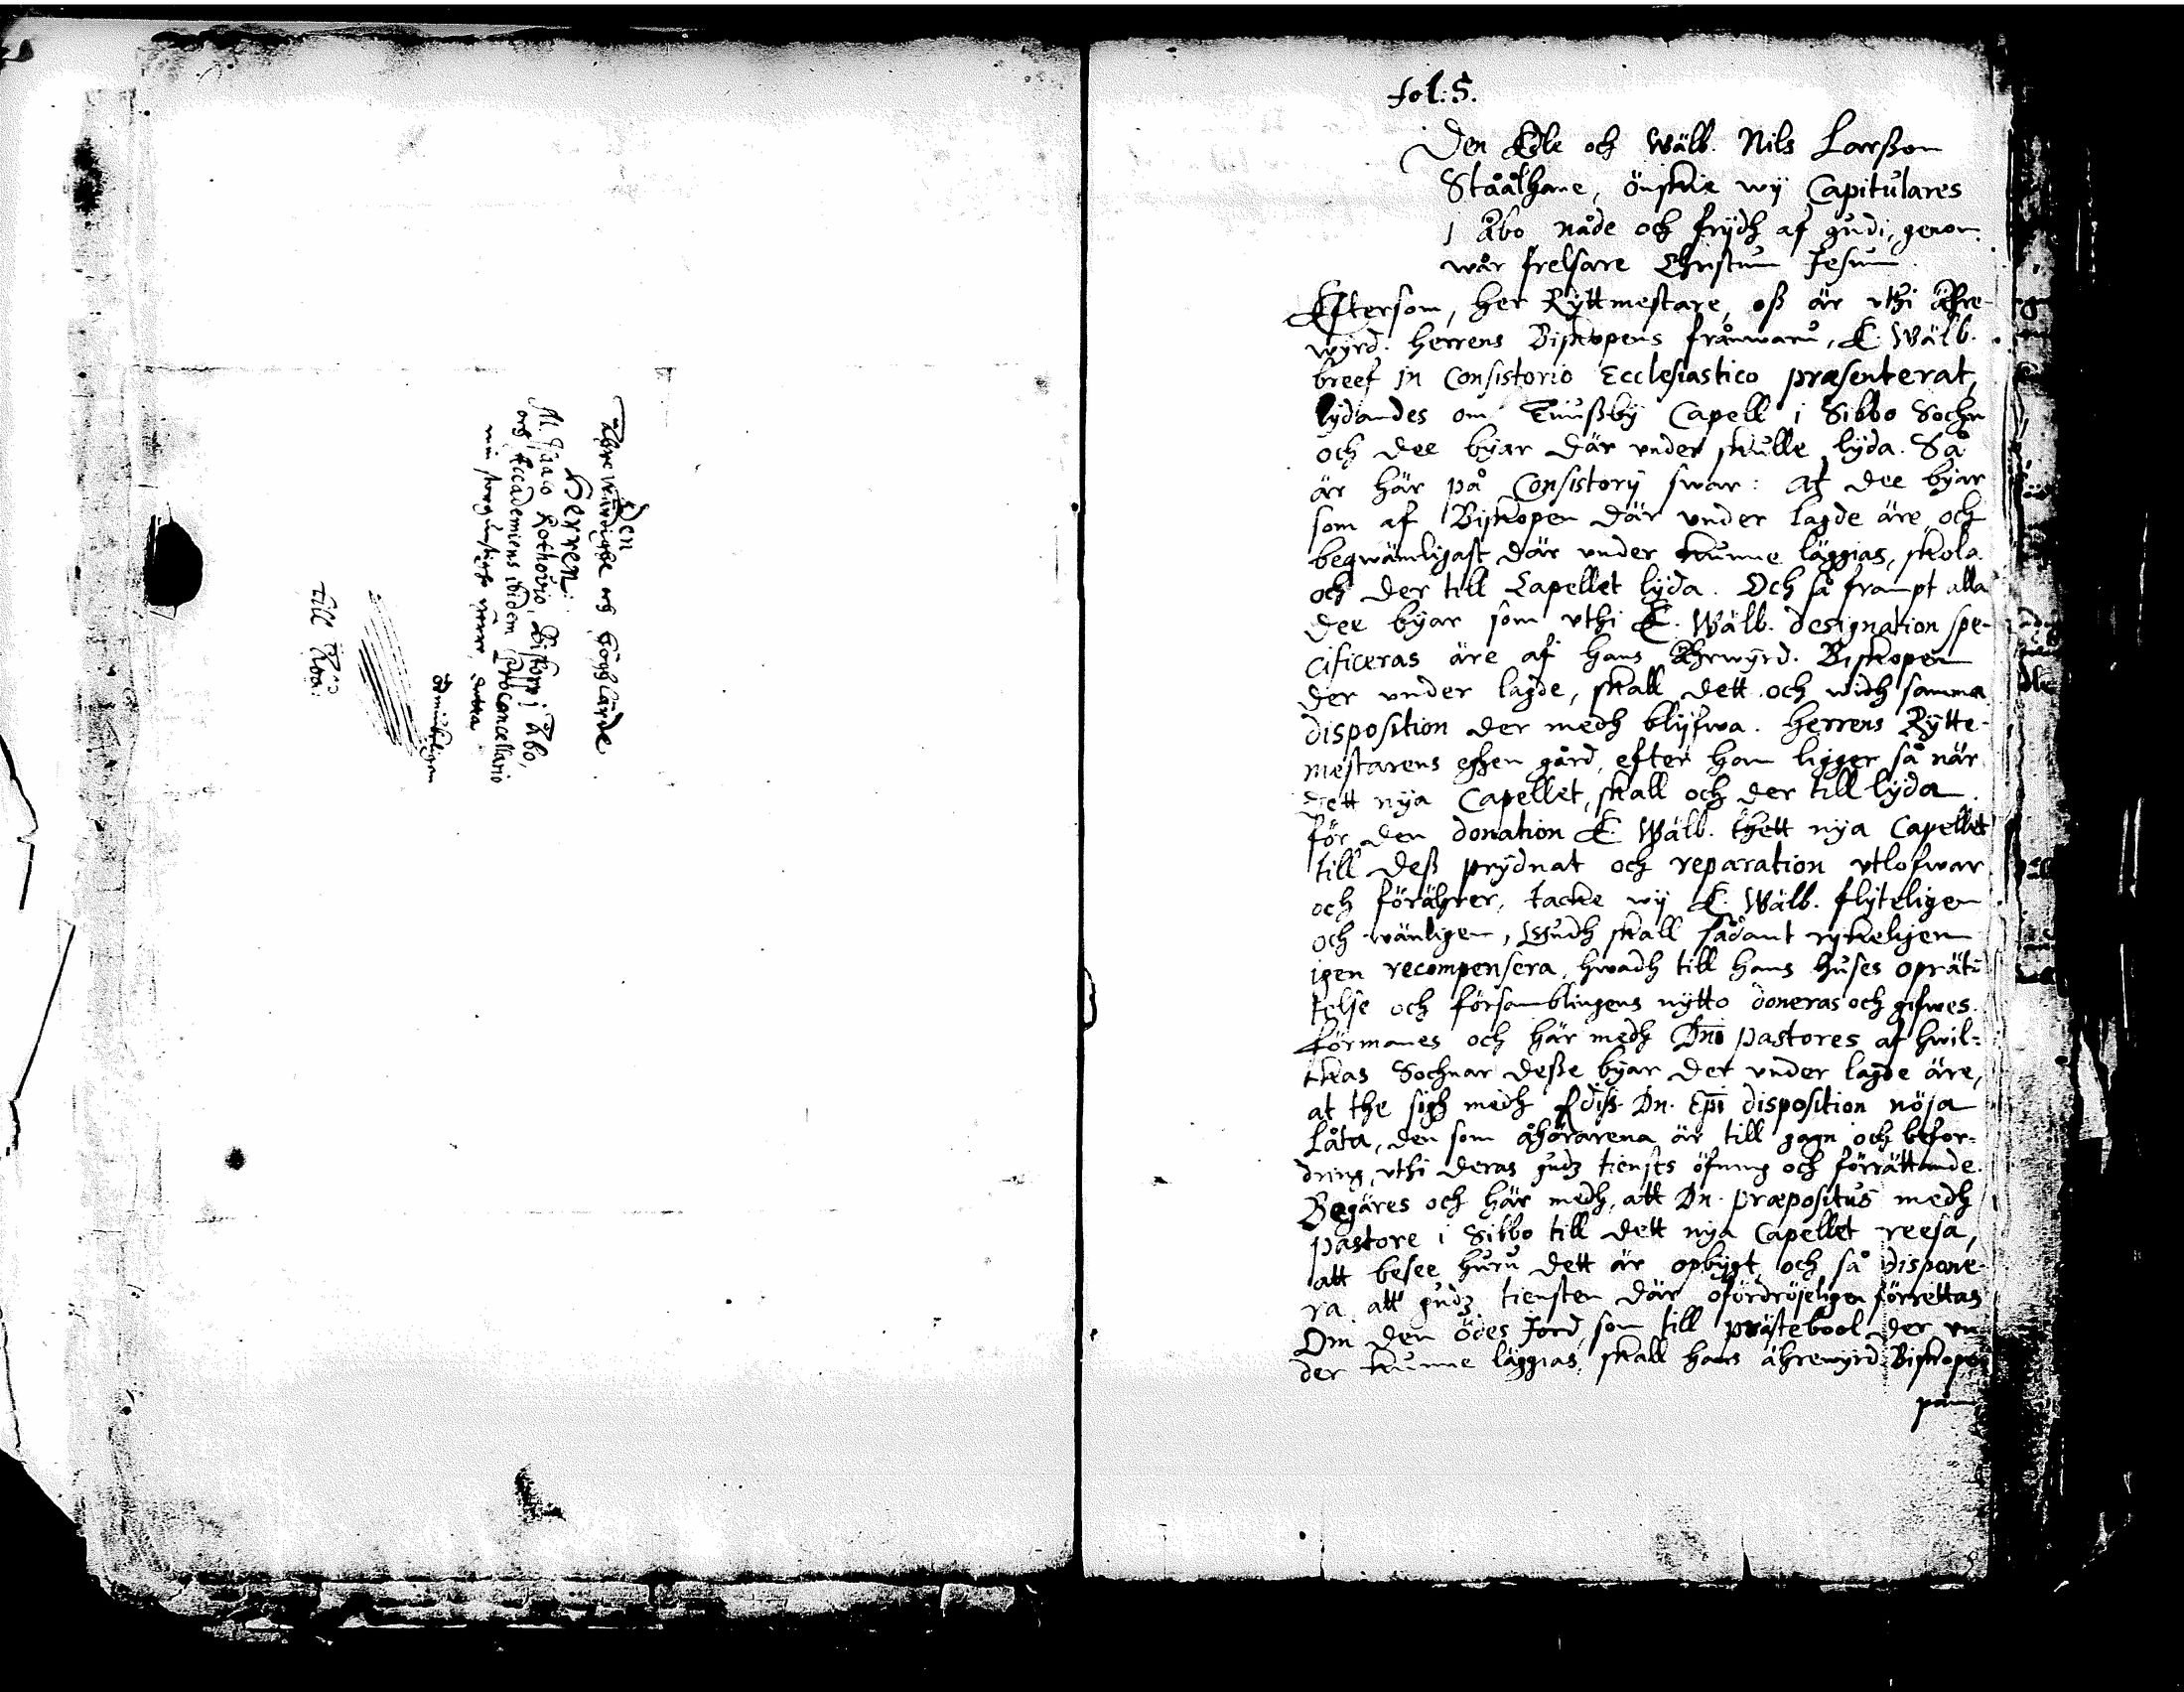 Den
Ährewürdigste och Höghlärde
Herren:
M. Isaco Rothovio, Biskopp i Åbo,
och Accademiens ibidem Procancellario
min storgunstigste
ödmiukeligen
till Åbo:
fol: 5.
Den Edle och Wälb. Nils Larßon
Ståålhane, önskie wÿ Capitulares
i Åbo nåde och frÿdh af gudi, genom
wår frelsare Christum Jesum
Eftersom, her Rÿttmestare, oß är vthi Ähre-
wÿrd. herrens Biskopens frånwaru, E. Wälb.
breef in Consistorio Ecclesiastico præsenterat,
lÿdandes om Tuußbÿ Capell i Sibbo Sochn
och dee bÿar där under skulle lÿda. Så
är här på Consistorÿ swar: At dee bÿar
som af Biskopen där vnder lagde äre och
beqwämligast där vnder kunne läggias, skola
och der till Capellet lÿda. Och så frampt alla
dee bÿar som vthi E. Wälb. designation spe-
cificeras äre af hans Ährwÿrd. Biskopen
der vnder lagde, skall dett och widh samma
disposition der medh blÿfwa. Herrens Rÿtte-
mestarens eghen gård, efter han ligger så när
dett nÿa Capellet, skall och der till lÿda.
för den donation E. Wälb. thett nÿa Capellet
till deß prÿdnat och reparation vtlofwar
och förährer, tacke wÿ E. Wälb. flÿteligen
och wänligen, Gudh skall sådant rÿkeligen
igen recompensera, hwadh till hans huses oprät-
telse och församblingens nÿtto doneras och gifwes.
förmanes och här medh Dni pastores af hwil-
kas Sochnar deße bÿar der vnder lagde äre,
at the sigh medh Rdiss. Dn. Epi disposition nöja
låta, den som åhörarena är till gagn och befor-
dring, vthi deras gudz tiensts öfning och förrättande.
Begäres och här medh, att Dn. præpositus medh
pastore i Sibbo till dett nÿa Capellet reesa,
att besee huru dett är opbÿgt och så dispone-
ra att gudz tiensten där ofördröjeligen förrettas
Om den ödes Jord som till prästebool der vn-
der kunne läggias, skall hans ährewÿrd. Biskopen